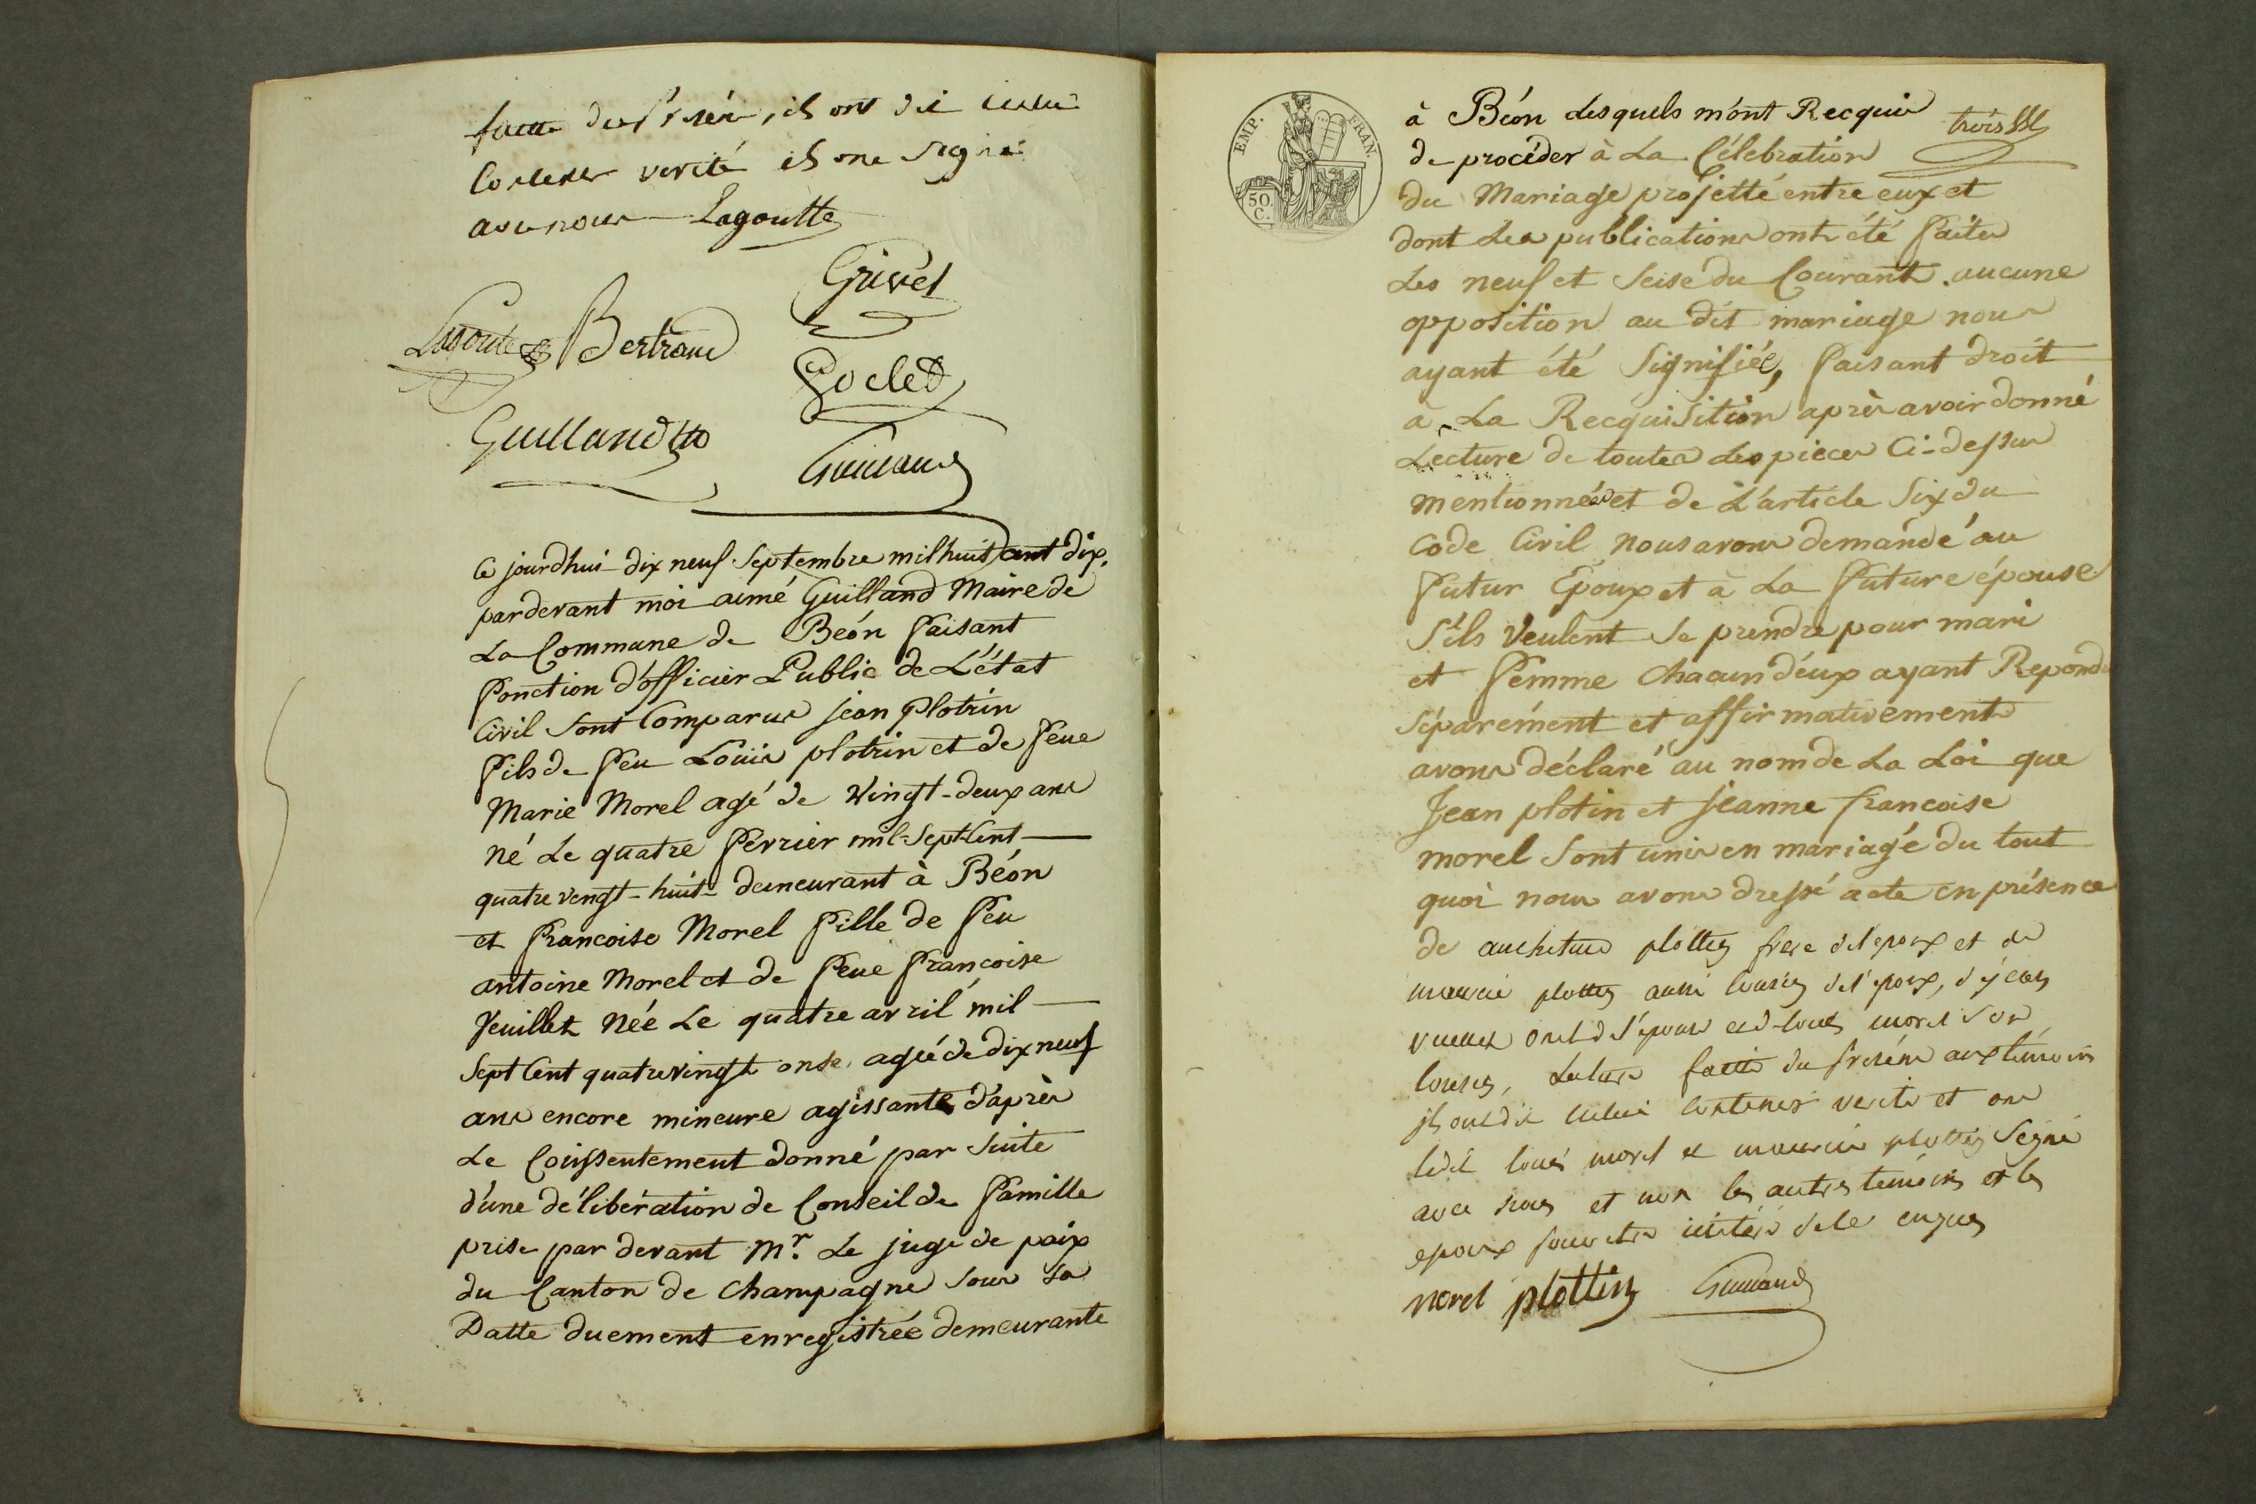 ils ont dit
contenir verité ils ont signé
avec nous Lagoutte
Grivét
Lagoutte Bertrand
Goclet
Guilland
Guilland
Ce jourdhui dix neuf Septembre mil huit cent dix.
pardevant moi aimé Guilland Maire de
La Commune de Beón faisant
fonction d'officier Public de L'état
Civil Sont Comparus jean plotin
fils de feu Loüis plotin et de feue
Marie Morel agé de vingt-deux ans
né Le quatre fevrier mil-Sept Cent
quatre vengt-huit demeurant à Béon
et francoise Morel fille de feu
antoine Morel et de feue francoise
Veuillet Née Le quatre avril mil
Sept Cent quatrevingt onse, agée de dix neuf
ans encore mineure agissante d'après
Le Conssentement donné par Suite
d'une délibération de Conseil de famille
prise par devant Mr. Le juge de paix
du Canton de Champagne Sous Sa
Datte duement enregistrée demeurante
EMP. FRAN.
50. C.
à Béon Lesquels m'ont Recquis
trois
de procéder à La Célebration
du Mariage projetté entre eux et
dont Les publications ont été faites
Les neuf et Seise du Courant. aucune
opposition au dit mariage nous
ayant été Signifiée, faisant droit
à La Recquisition après avoir donné
Lecture de toutes Les pieces Ci-dessus
mentionnées et de L'article Six du
Code Civil nous avons demandé au
futur Époux et à La future épouse
S'ils veulent Se prendre pour mari
et femme chacun d'eux ayant Repondu
Séparément et affirmativement
avons déclaré au nom de La Loi que
Jean plotin et Jeanne francoise
morel Sont unis en mariagé du tout
quoi nous avons dressé acte en présence
de plottin frere de l'epoux et de
plottin aussi cousin de l'epoux, de jean
oncle de l'épouse et de Louis morel son
cousin, Lecture faitte du présent aux temoins
ils ont dit contenir verité et ont
ledit Louis morel et plottin Signé
avec nous et non les autres temoins et les
epoux pour etre de le enquis
morel plottin Guilland